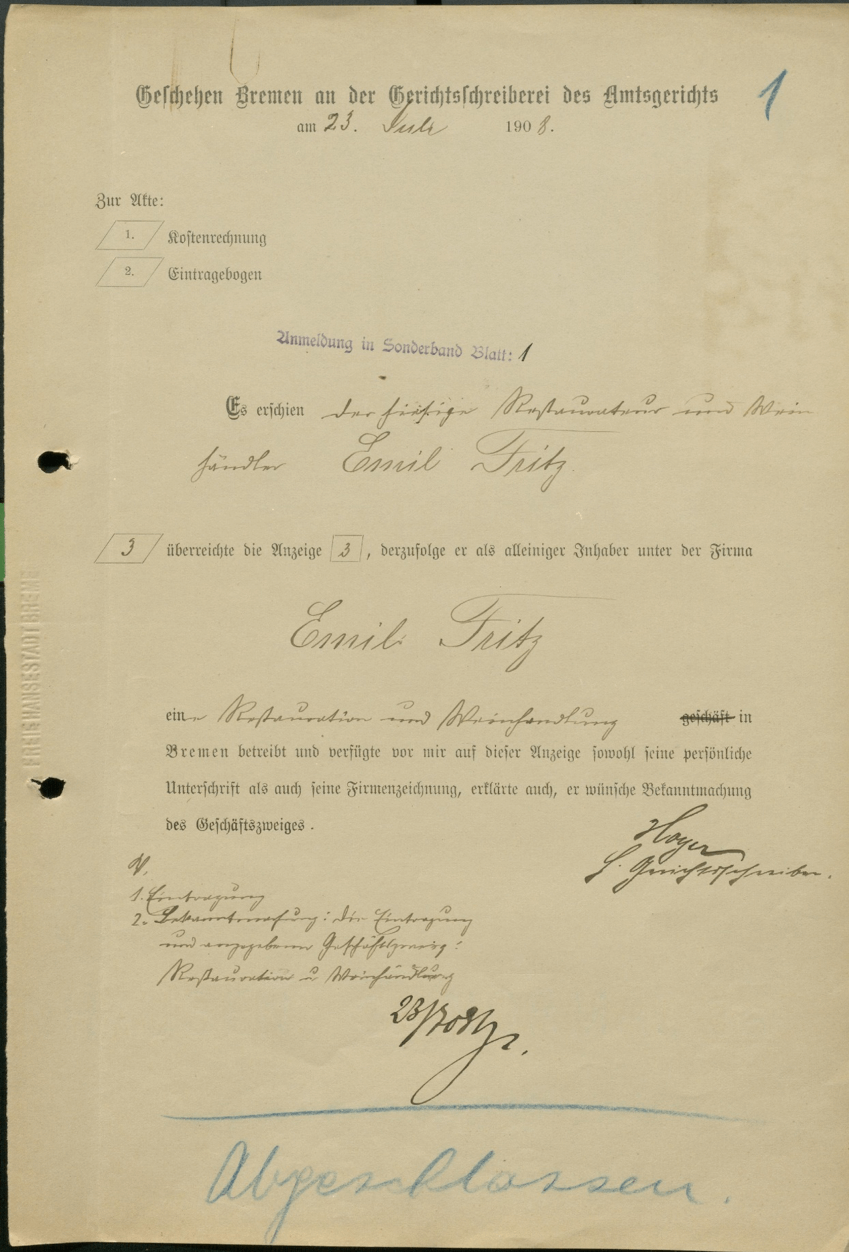 1
Geschehen Bremen an der Gerichtsschreiberei des Amtsgerichts
am 23. Juli 1908.
Zur Akte:
1. Kostenrechnung
2. Eintragebogen
Anmeldung in Sonderband Blatt: 1
Es erschien der hiesige Restaurateur und Wein
händler Emil Fritz
3 überreichte die Anzeige 3, derzufolge er als alleiniger Inhaber unter der Firma
Emil Fritz
eine Restauration und Weinhandlung geschäft in
Bremen betreibt und verfügte vor mir auf dieser Anzeige sowohl seine persönliche
Unterschrift als auch seine Firmenzeichnung, erklärte auch, er wünsche Bekanntmachung
des Geschäftszweiges.
Hoyer
Gerichtsschreiber.
V.
1. Eintragung
2. Bekanntmachung: die Eintragung
und angegebenen Geschäftszweig:
Restauration u Weinhandlung
23/7 08
Abgeschlossen.
FREIE HANSESTADT BREMEN